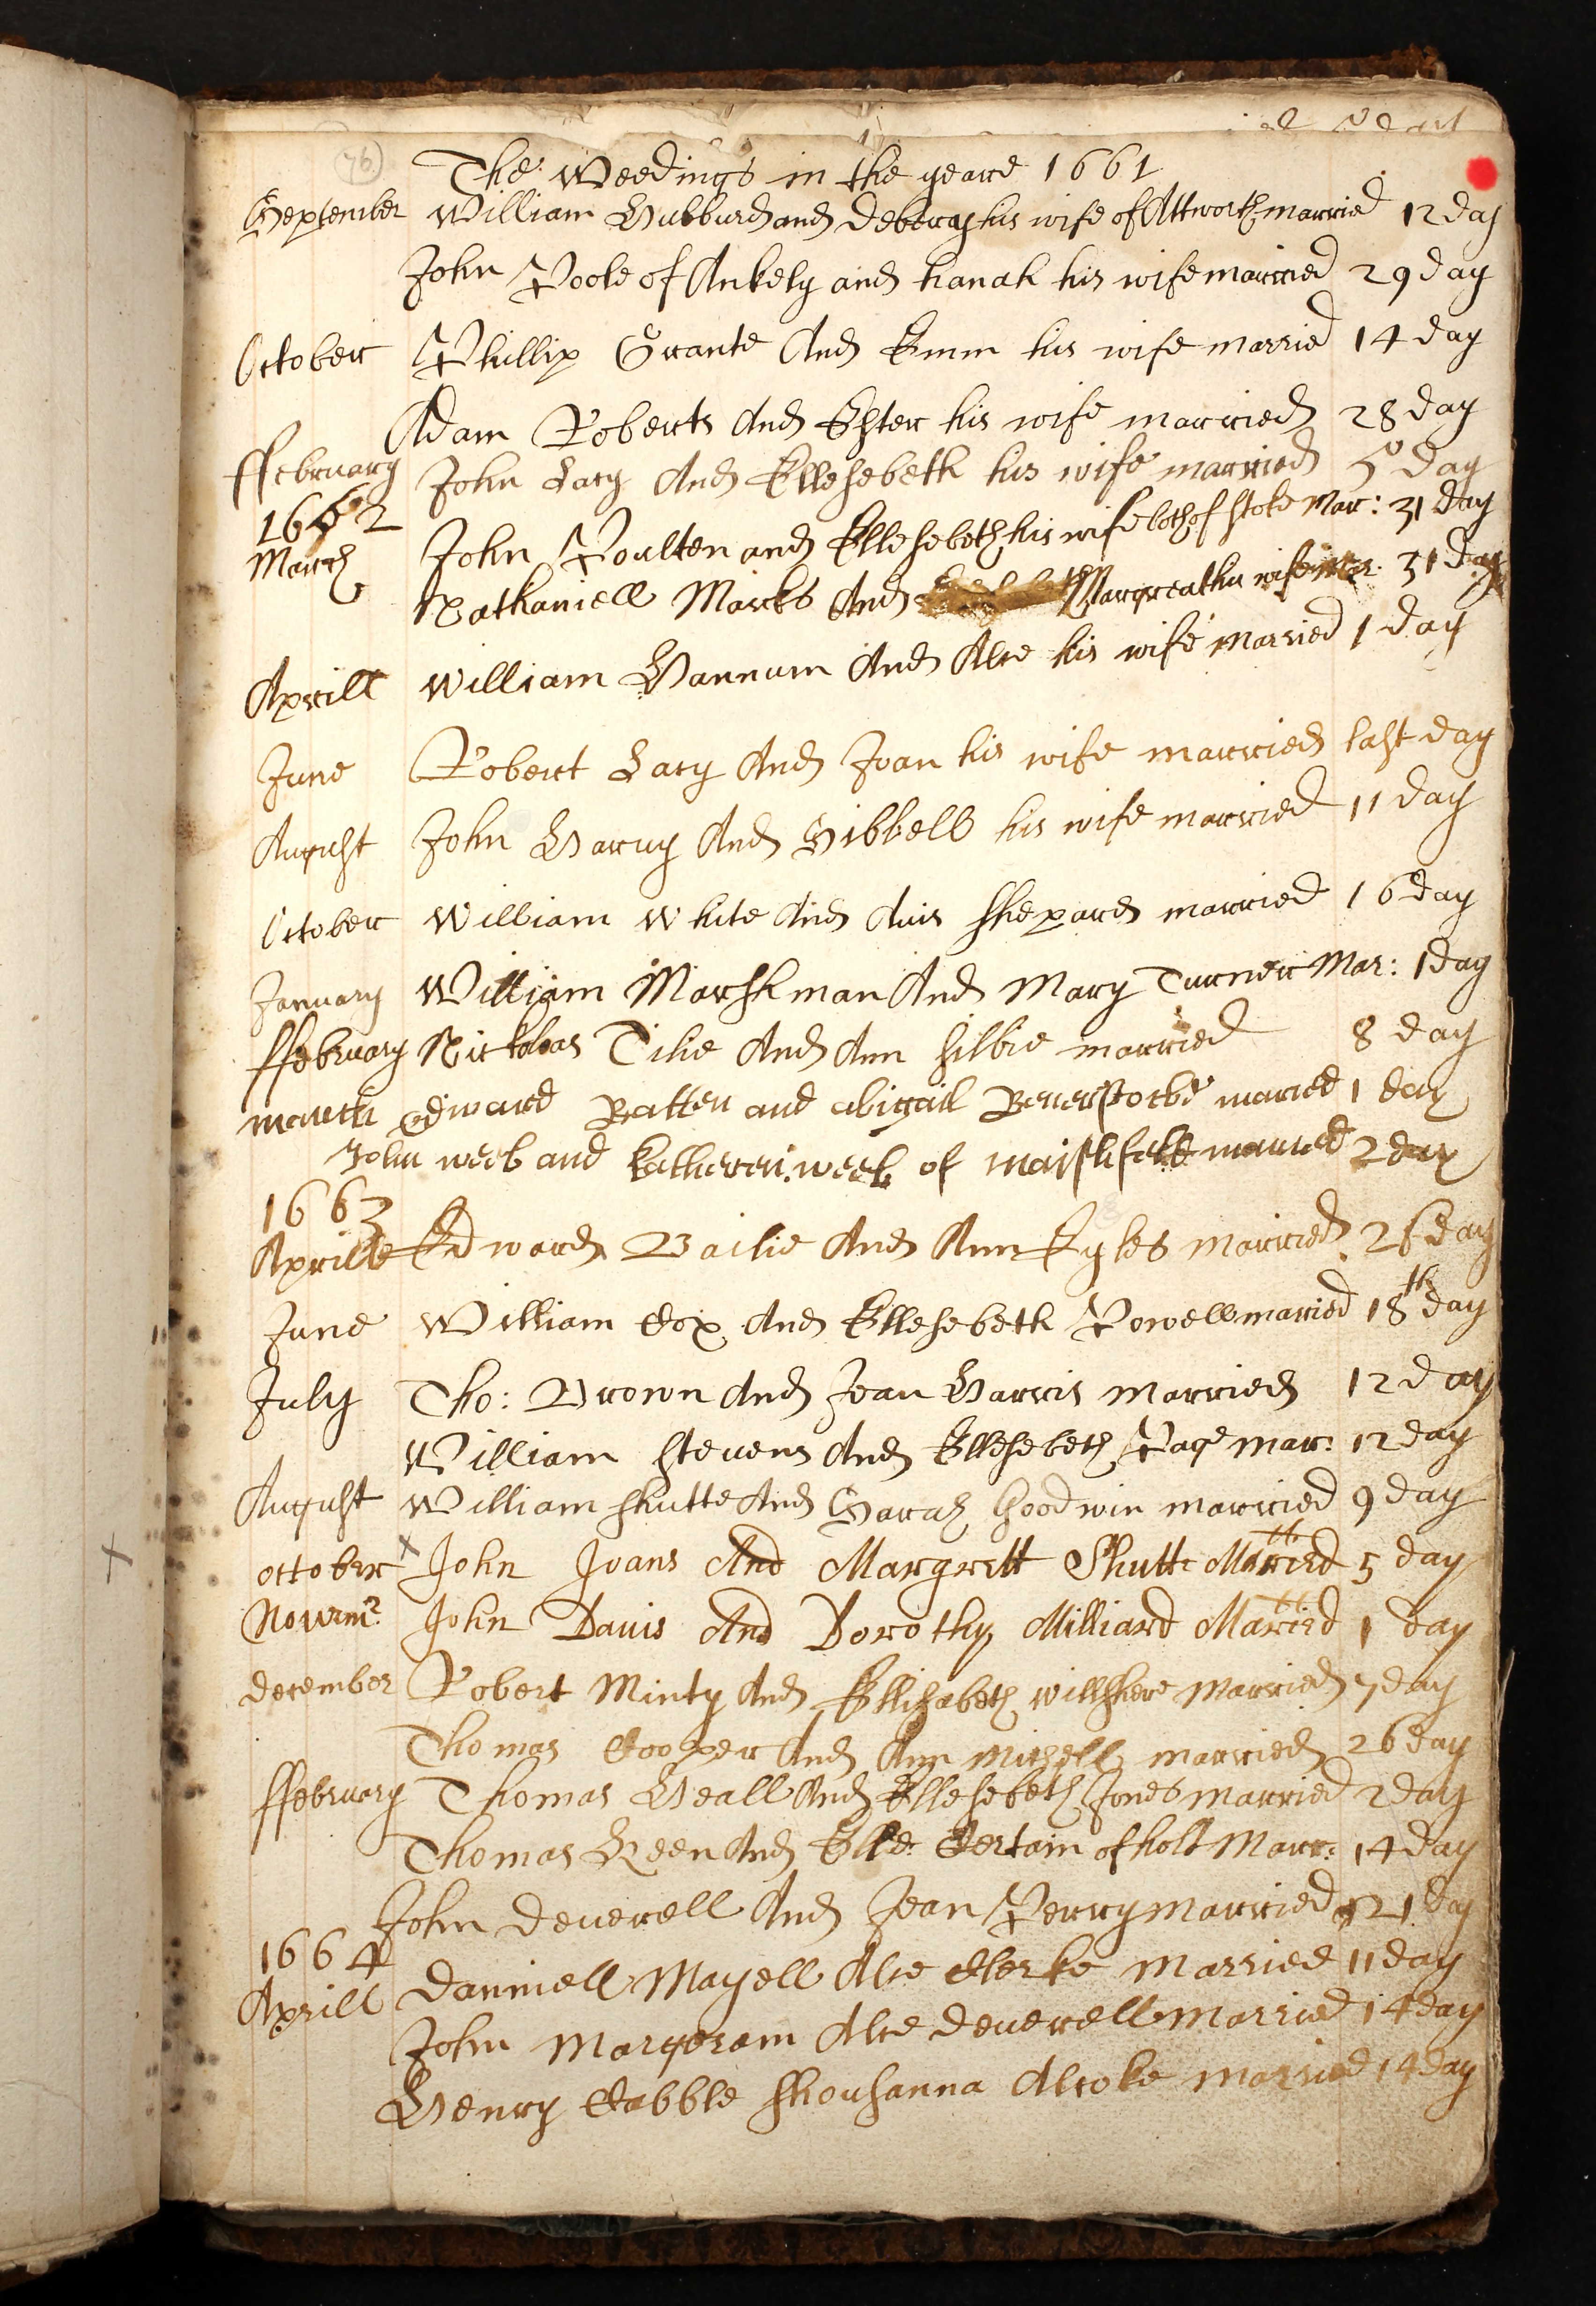 76
The Weedings in the yeare 1661
September William Hubburd and Deboray his wife of Attworth married 12 day
John Poole of Ankely and hanah his wife married 29 day
October Phillip Grante And Emm his wife married 14 day
Adam Roberts And Ester his wife married 28 day
ffebruary John Lacy And Ellesebeth his wife married 5 day
1662
March John Poulten and Ellesebeth his wife both of stoke Mar: 31 day
Nathaniell Marks And Margreat his wife Mar: 31 day
Aprill William Hannum And Alce his wife Married 1 day
June Robert Lacy And Joan his wife married last day
August John Haruy And Sibbell his wife married 11 day
October William White And Auis Shepard married 16 day
January William Marshman And Mary Turner Mar: 1 day
ffebruary Nickolas Tilie And Ann Silbie married 8 day
march edward Batten and abigail married 1 day
John week and Katheren week of maishfeld maried 2 day
1663
Aprill Edward Bailie And Ann Eykes married 26 day
June William Cox And Ellesebeth Powell maried 18th day
July Tho: Brown And Joan Harris married 12 day
William Steuens And Ellesebeth Page mar: 12 day
August William Shutte And Sarah Goodwin married 9 day
october x John Joans And Margrett Shutte Maried 5th day
Nouemr John Dauis And Dorothy Milliard Maried 1 day
december Robert Minty And Ellizabeth Willshere Married 7 day
Thomas Cooper And Ann Michell married 26 day
ffebruary Thomas Heall And Ellesebeth Jones married 2 day
Thomas Keen And Elle: Certain of holt Marr: 14 day
John Deuerell And Jean Perry married 21 day
1664
Aprill Danniell Mayell Alce Clerke Married 11 day
John Margeram Alce Deuerell Married 14 day
Henry Cabble Shousanna Alcoke Married 14 day